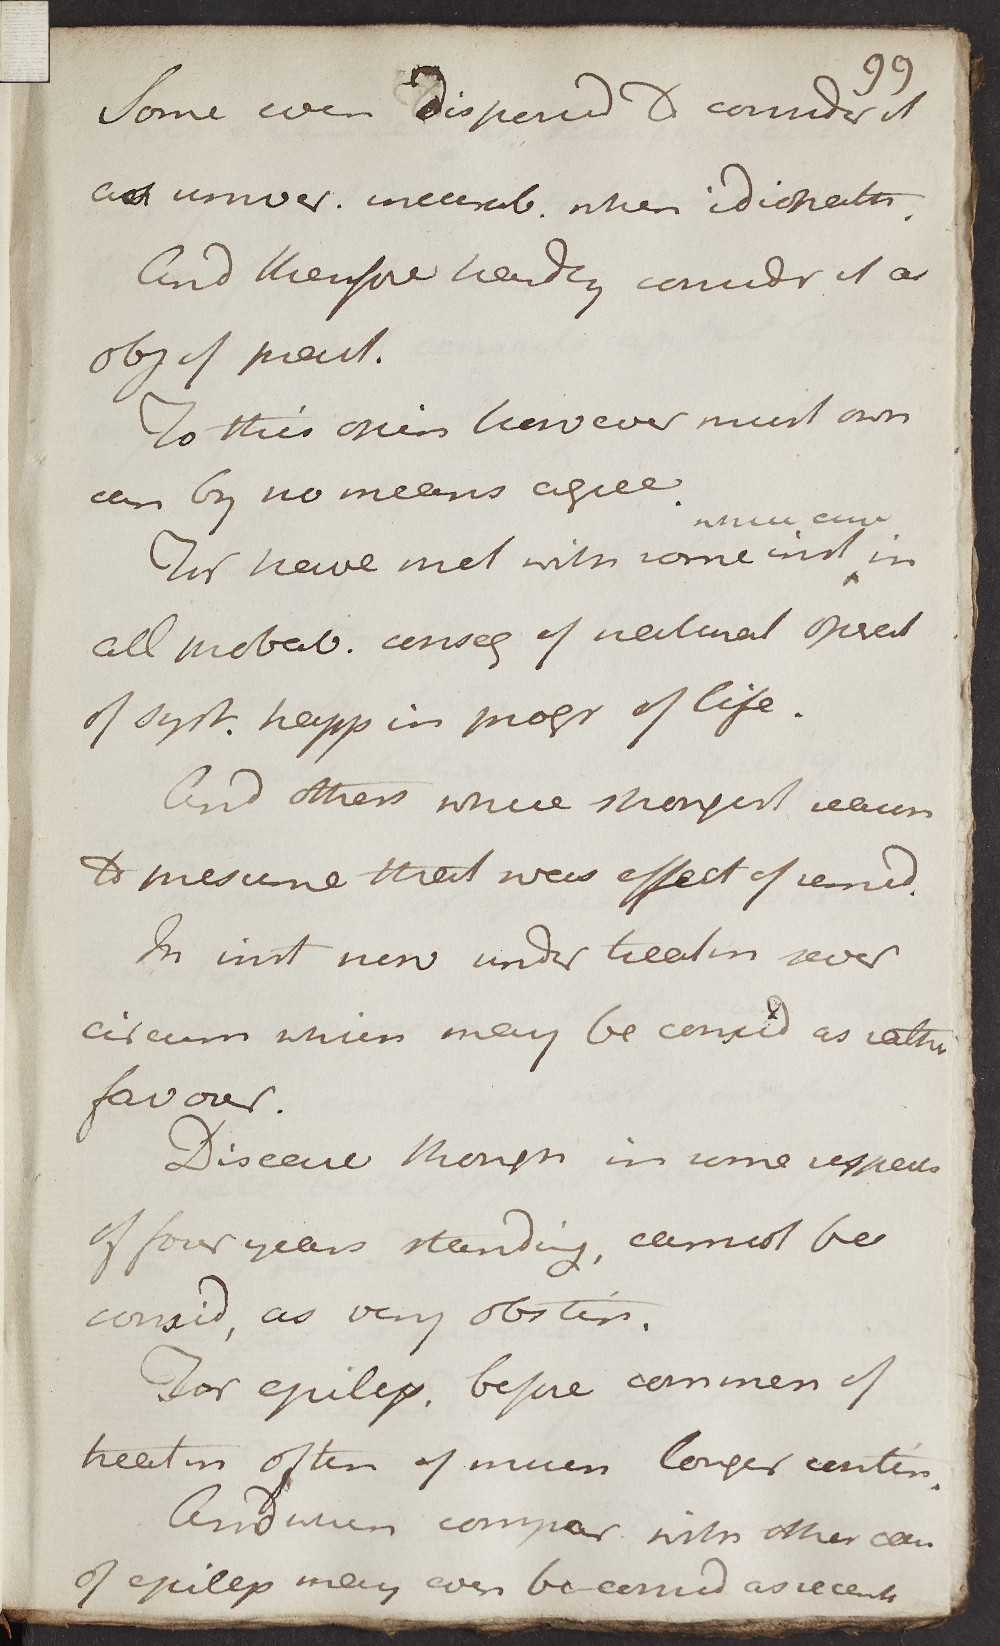 99
Some even disposed to consider it
as univer. incurab. when idiopath.
And therefore hardly consider it as
obj of pract.
To this opin however must own
can by no means agree.
where cure
For have met with some inst in
all probab. conseq of natural operat
of syst. happ in progr of life.
And others where strongest reason
to presume that was effect of remed.
In inst now under treatm sever
circum which may be consid as rather
favour.
Disease though in some respects
of four years standing, cannot be
consid, as very obstin.
For epilep. before commen of
treatm often of much longer contin.
And when compar with other cases
of epilep may even be consid as recent